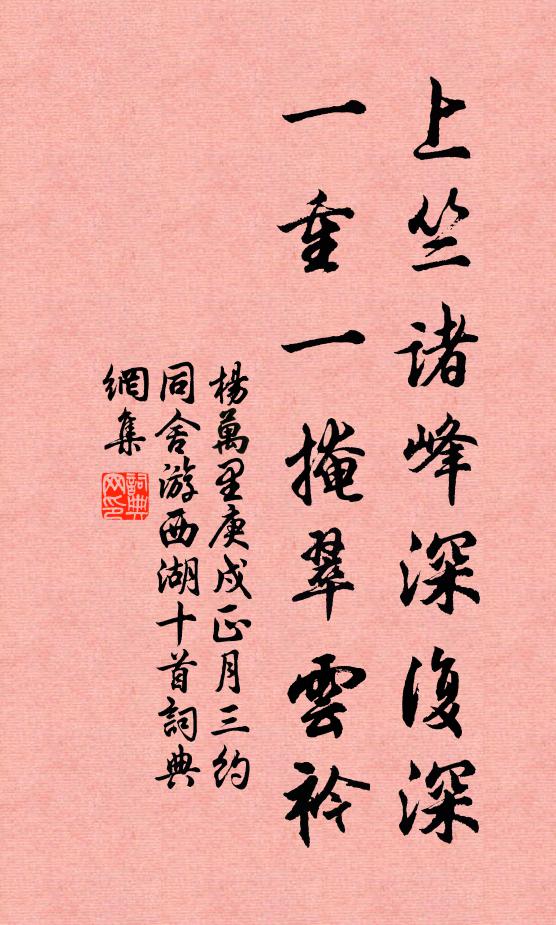 上竺諸峰深復深
一重一掩翠雲衿
楊萬里庚戌正月三約
同舍游西湖十首詞典
網集
詞典
网印